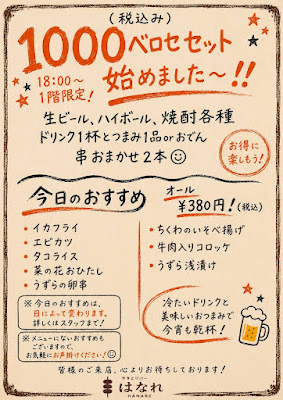 (税込み)
1000ベロセセット
18:00～
1階限定！
始めました～!!
生ビール、ハイボール、焼酎各種
ドリンク1杯とつまみ1品orおでん
串おまかせ2本
お得に
楽しもう！
今日のおすすめ
・イカフライ
・エビカツ
・タコライス
・菜の花おひたし
・うずらの卵串
※今日のおすすめは、
日によって変わります。
詳しくはスタッフまで！
※メニューにないおすすめも
ございますので、
お気軽にお声掛けください！
オール
¥380円！(税込)
・ちくわのいそべ揚げ
・牛肉入りコロッケ
・うずら浅漬け
冷たいドリンクと
美味しいおつまみで
今宵も乾杯！
皆様のご来店、心よりお待ちしております！
はなれ
HANARE